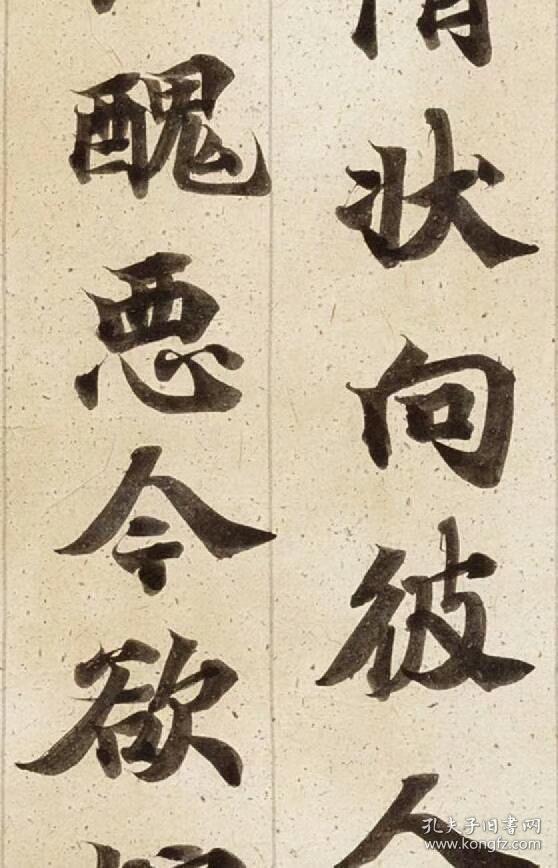 情状向彼人
醜悪今欲
孔夫子旧书网
www.kongfz.com